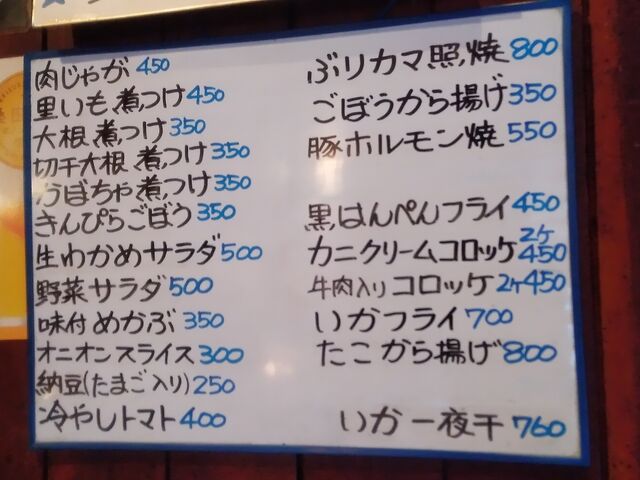 肉じゃが 450
里いも煮つけ 450
大根煮つけ 350
切干大根煮つけ 350
かぼちゃ煮つけ 350
きんぴらごぼう 350
生わかめサラダ 500
野菜サラダ 500
味付めかぶ 350
オニオンスライス 300
納豆(たまご入り) 250
冷やしトマト 400
ぶりカマ照焼 800
ごぼうから揚げ 350
豚ホルモン焼 550
黒はんぺんフライ 450
カニクリームコロッケ 2ケ 450
牛肉入りコロッケ 2ケ 450
いかフライ 700
たこから揚げ 800
いか一夜干 760